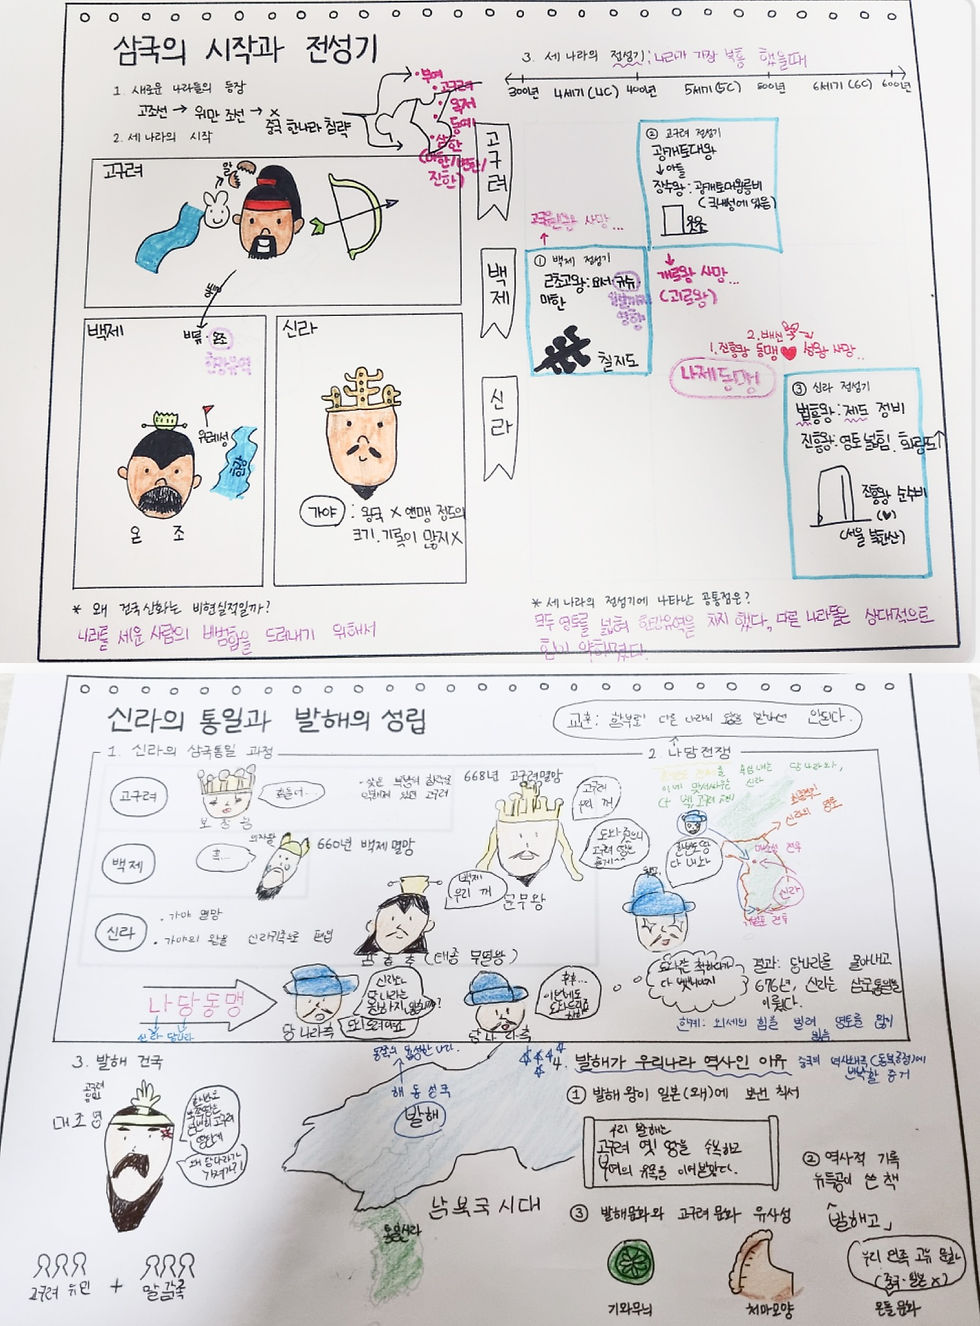 삼국의 시작과 전성기
1. 새로운 나라들의 등장
고조선 → 위만 조선 → ×
중국 한나라 침략
부여
고구려
옥저
동예
삼한
(마한/변한/
진한)
2. 세 나라의 시작
고구려
알
백제
비류
온조
한강유역
위례성
한강
온 조
신라
가야 : 왕국 X 연맹 정도의
크기. 기록이 많지 X
* 왜 건국신화는 비현실적일까?
나라를 세운 사람의 비범함을 드러내기 위해서
3. 세 나라의 전성기: 나라가 가장 부흥 했을때
300년 4세기(4C) 400년 5세기(5C) 500년 6세기(6C) 600년
고구려
백제
신라
② 고구려 전성기
광개토대왕
↓아들
장수왕: 광개토대왕릉비
(국내성에 있음)
고국원왕 사망...
① 백제 전성기
근초고왕: 와서 규슈
마한
영향
칠지도
개로왕 사망...
2. 배신
1. 진흥왕 동맹 성왕 사망..
나제동맹
③ 신라 전성기
법흥왕: 제도 정비
진흥왕: 영토 넓힘. 화랑도↑
진흥왕 순수비
(서울 북한산)
* 세 나라의 전성기에 나타난 공통점은?
모두 영토를 넓혀 한강유역을 차지 했다, 다른 나라들은 상대적으로
힘이 약해졌다.
신라의 통일과 발해의 성립
교훈: 함부로 다른 나라의 힘을 빌려선 안된다.
1. 신라의 삼국통일 과정
고구려
흐흠..
보장왕
668년 고구려멸망
고구려
우리 꺼
백제
의자왕
흑...
660년 백제 멸망
백제
우리 꺼
문무왕
신라
· 가야 멸망
· 가야의 왕을 신라귀족으로 편입
김춘추 (태종 무열왕)
나당동맹
신라 당나라
당나라측
당나라측
2. 나당전쟁
신라의 영토
매소성 전투
신라
기벌포 전투
한반도 땅
다 내놔
결과: 당나라를 몰아내고
676년, 신라는 삼국통일을
이뤘다.
한계: 외세의 힘을 빌려 영토를 많이
잃음
3. 발해 건국
고구려
유민
대조영
고구려 유민 + 말갈족
해동성국
발해
남북국 시대
통일신라
4. 발해가 우리나라 역사인 이유
중국의 역사왜곡(동북공정)에
반박할 증거
① 발해 왕이 일본(왜)에 보낸 칙서
우리 발해는
고구려 옛 땅을 수복하고
부여의 유속을 이어받았다.
② 역사적 기록
유득공이 쓴 책
「발해고」
③ 발해문화와 고구려 문화 유사성
기와무늬
치미모양
우리 민족 고유 문화
(중국·일본 X)
온돌 문화